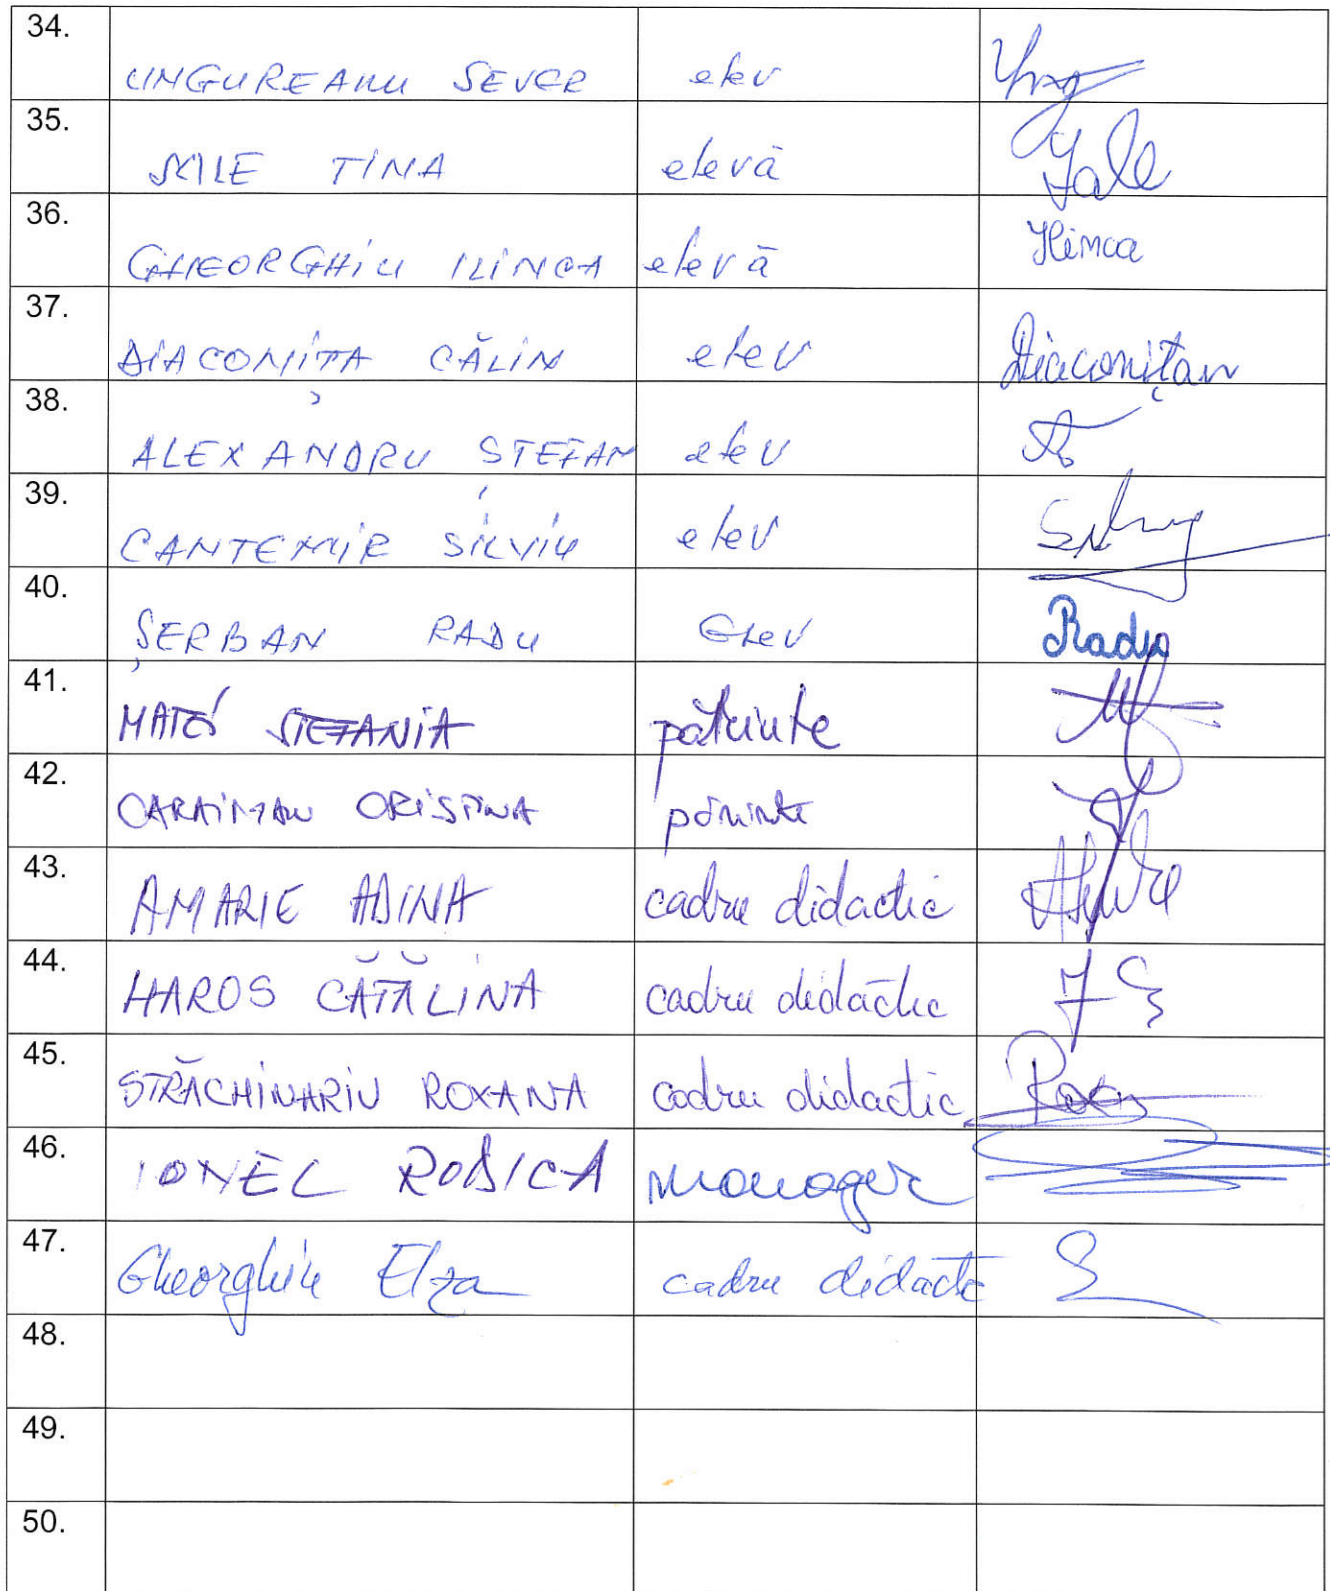 34. UNGUREANU SEVER elev
35. TINA elevă
36. GHEORGHIU ILINCA elevă Ilinca
37. DIACONIȚA CĂLIN elev
38. ALEXANDRU STEFAN elev
39. CANTEMIR SILVIU elev
40. ȘERBAN RADU Elev Radu
41. STEFANIA
42. CARAIMAN CRISTINA părinte
43. AMARIE ADINA cadru didactic
44. HAROS CĂTĂLINA cadru didactic
45. STRĂCHINARIU ROXANA cadru didactic
46. IONEL RODICA manager
47. Gheorghiu Elza cadru didactic
48.
49.
50.